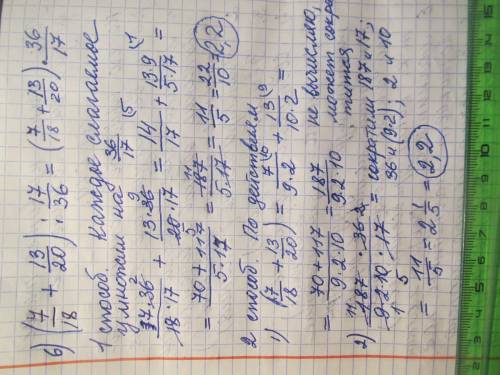 б) (7/18 + 13/20) : 17/36 = (7/18 + 13/20) · 36/17
1 способ. Каждое слагаемое
умножаем на 36/17
7·36/18·17 + 13·36/20·17 = 14/17 + 13·9/5·17 =
= 70+117/5·17 = 187/5·17 = 11/5 = 22/10 = 2,2
2 способ. По действиям
1) (7/18 + 13/20) = 7/9·2 + 13/10·2 =
= 70+117/9·2·10 = 187/9·2·10 не вычисляю,
может сокра-
тится
2) 187·36/9·2·10·17 = сократили 187 и 17;
36 и (9·2); 2 и 10
= 11/5 = 2 1/5 = 2,2